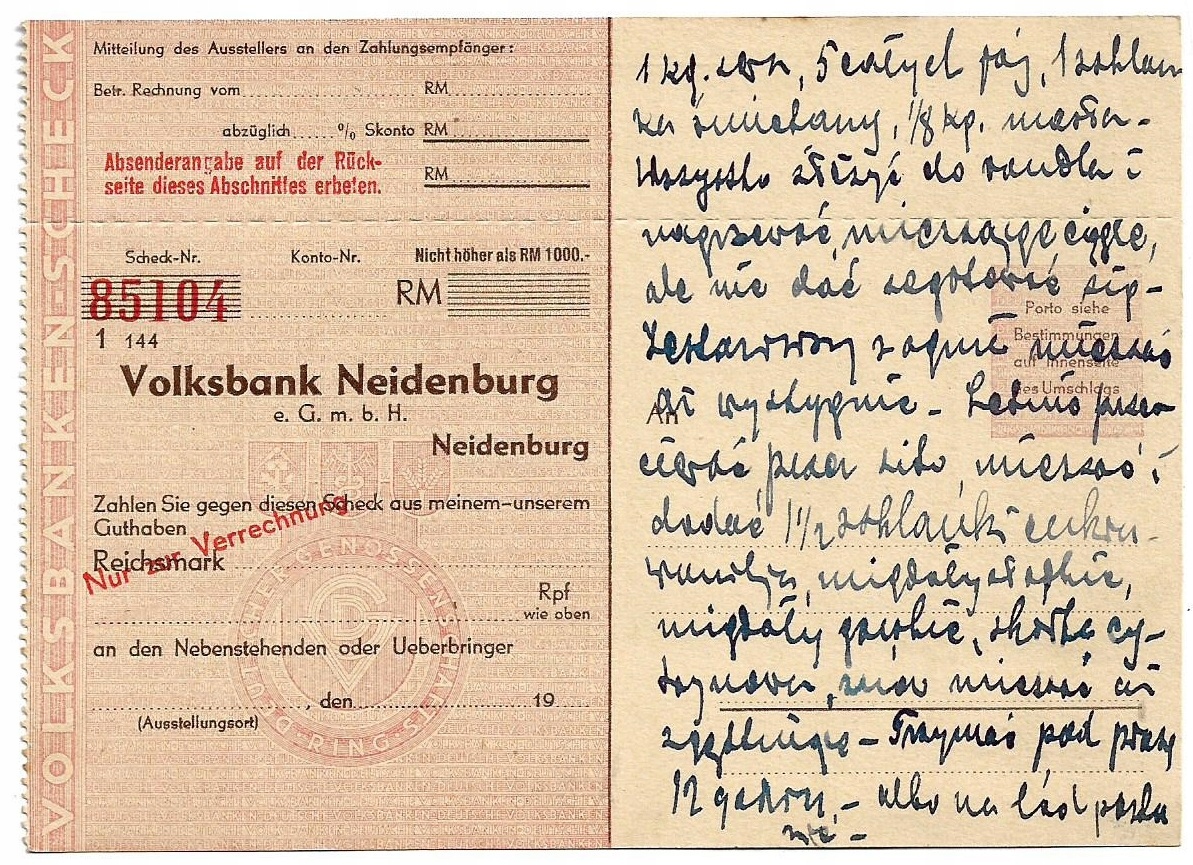 VOLKSBANKEN-SCHECK
Mitteilung des Ausstellers an den Zahlungsempfänger:
Betr. Rechnung vom RM
abzüglich % Skonto RM
Absenderangabe auf der Rück-
seite dieses Abschnittes erbeten.
RM
Scheck-Nr. Konto-Nr. Nicht höher als RM 1000.-
85104 RM
1 144
Volksbank Neidenburg
e. G. m. b. H.
Neidenburg
Zahlen Sie gegen diesen Scheck aus meinem-unserem
Guthaben
Nur zur Verrechnung
Reichsmark
Rpf
wie oben
an den Nebenstehenden oder Ueberbringer
, den 19
(Ausstellungsort)
DEUTSCHER GENOSSENSCHAFTS-RING
1 kg. sera, 5 całych jaj, 1 szklan
ka śmietany, 1/8 kg. masła -
Wszystko złożyć do rondla i
nagrzewać, mieszając ciągle,
ale nie dać zagotować się -
Zestawiwszy z ognia mieszać
aż wystygnie - Letnio prze
cierać przez sito, mieszać i
dodać 1 1/2 szklanki cukru -
wanilja, migdały słodkie,
migdały gorzkie, skórka cy-
trynowa, mieszać aż
zgęstnieje - Trzymać pod prasą
12 godzin, - albo na lód posta
wić -
Porto siehe
Bestimmungen
auf Innenseite
des Umschlags
An